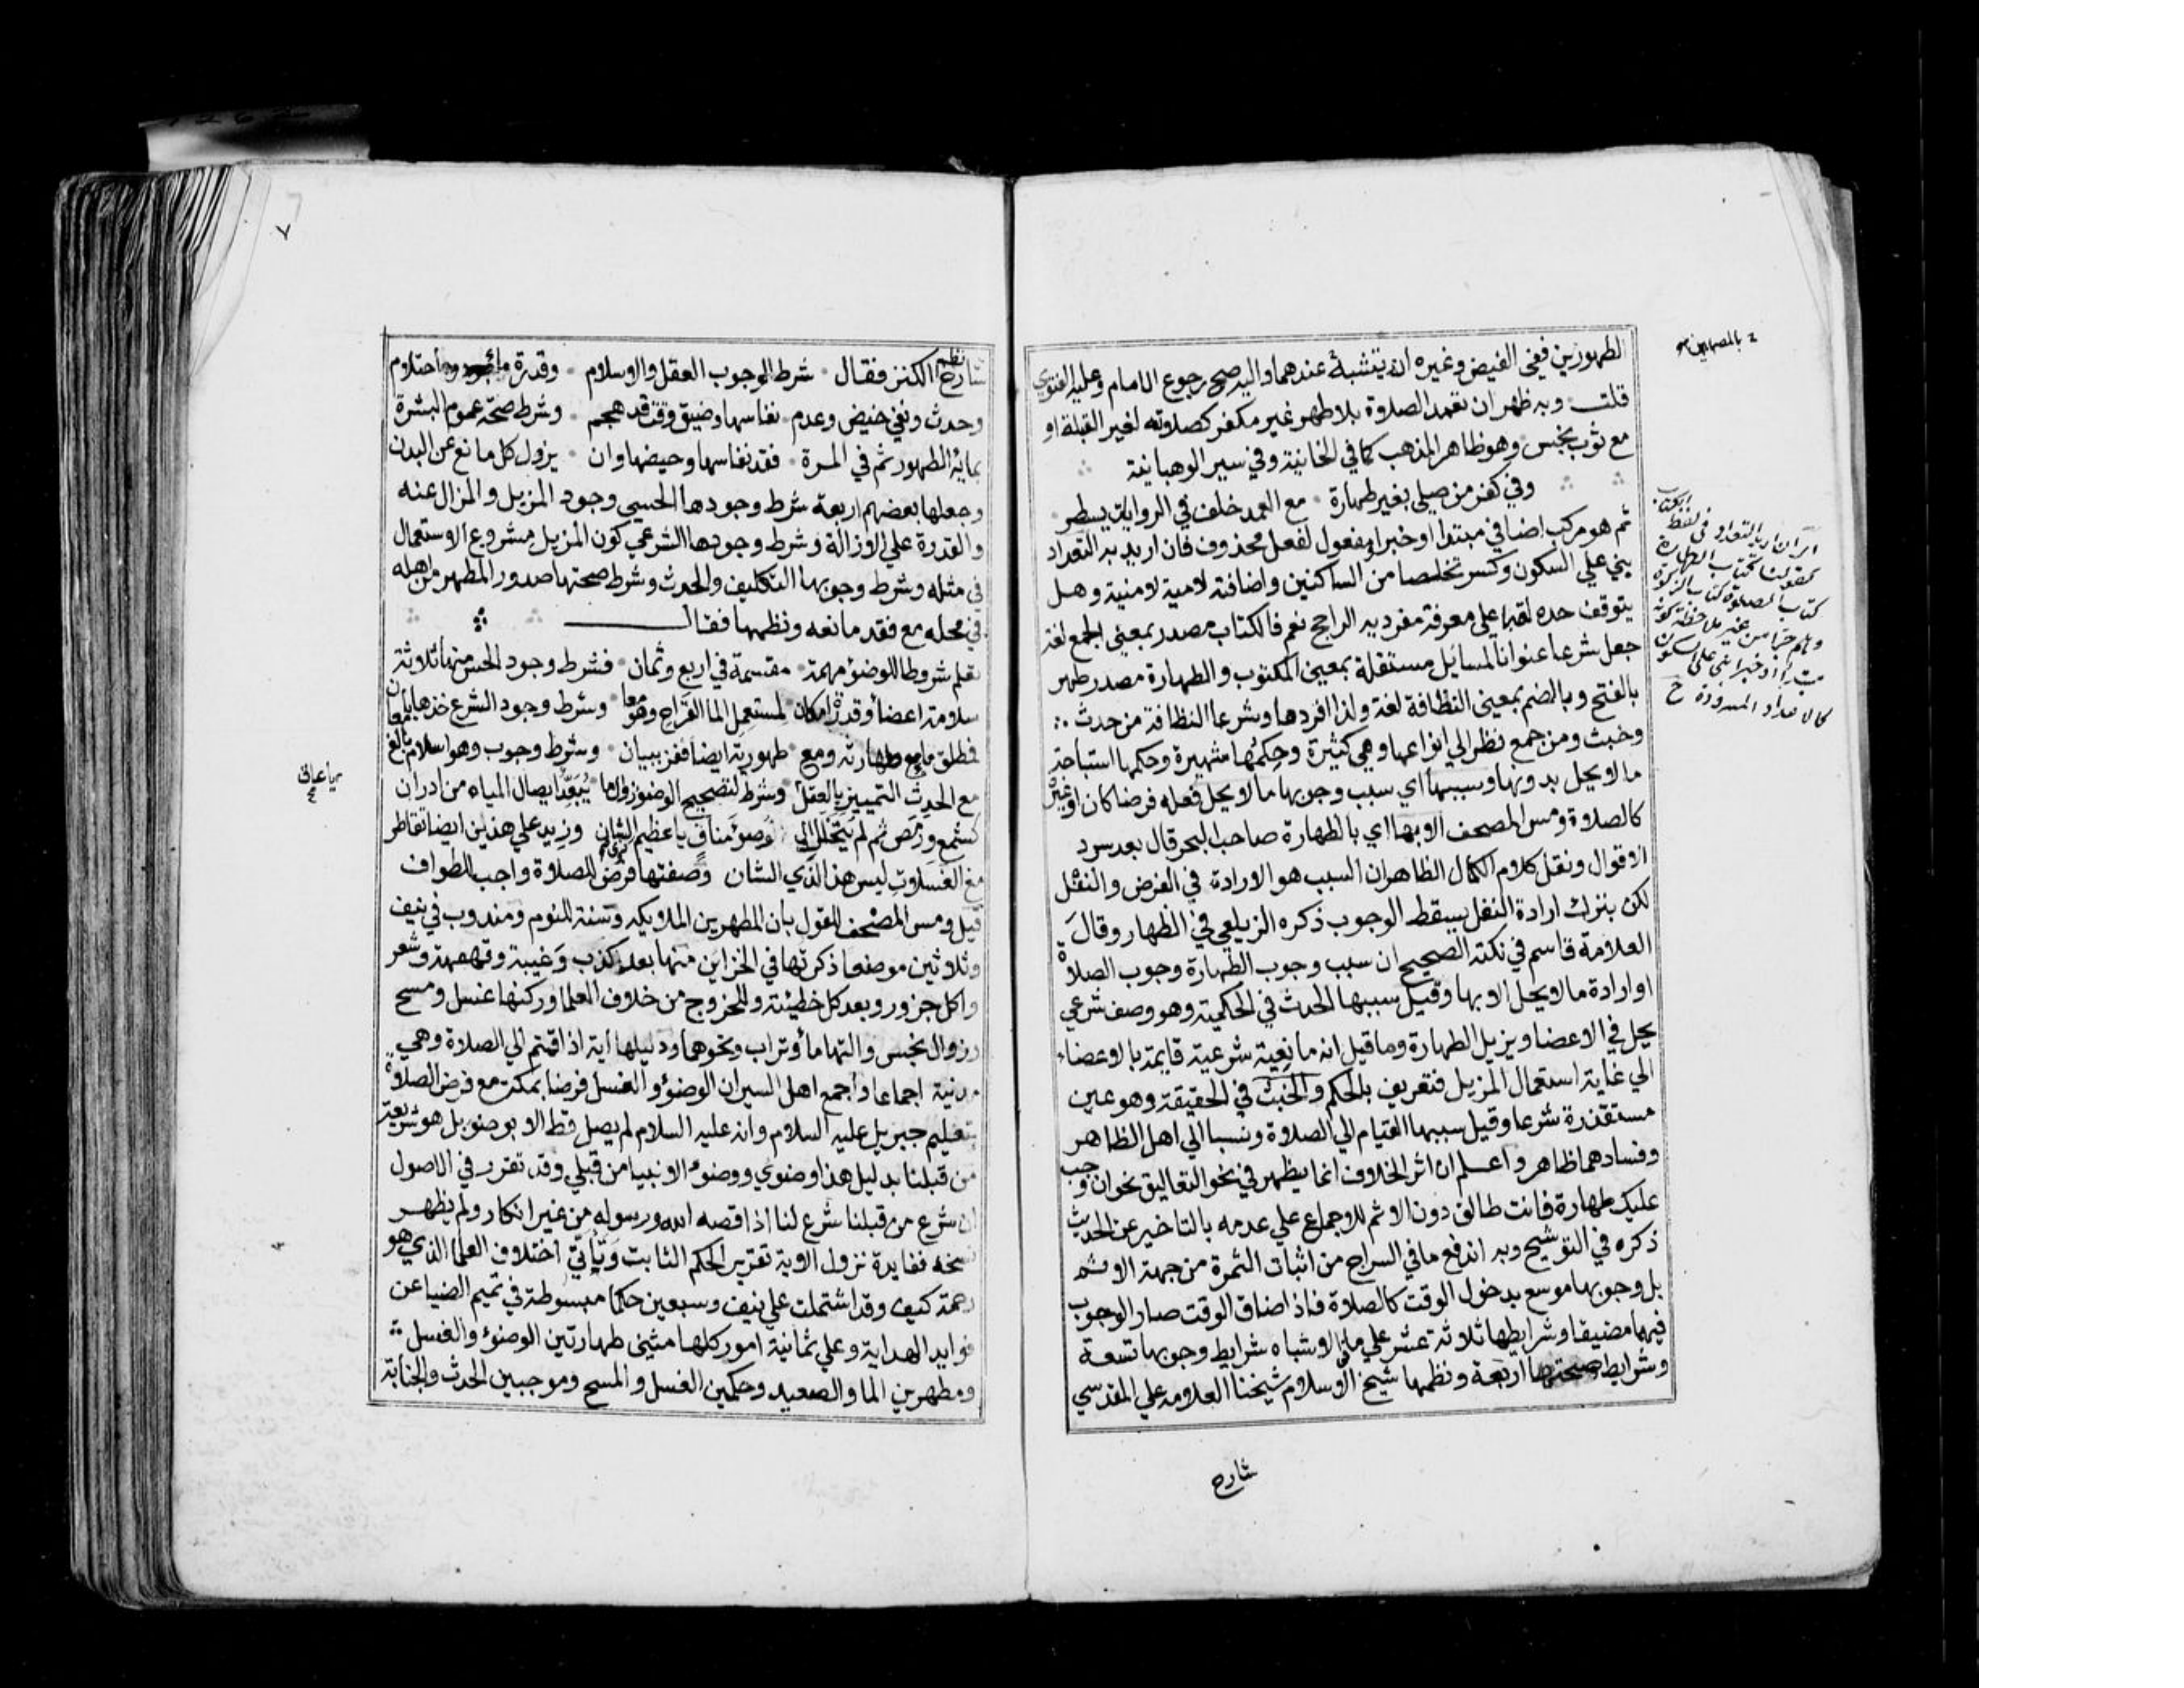 الطهورين ففي الفيض وغيره انه يتشبه عندهما واليه صح رجوع الامام وعليه الفتوي
قلت وبه ظهر ان تعمد الصلاة بلا طهر غير مكفر كصلاته لغير القبلة او
مع ثوب نجس وهو ظاهر المذهب كما في الخانية وفي سير الوهبانية
وفي كفر من صلى بغير طهارة مع العمد خلف في الروايات يسطر
ثم هو مركب اضافي مبتدا او خبر او مفعول لفعل محذوف فان اريد به التعداد
بني علي السكون وكسر تخلصا من الساكنين واضافته لامية لا منية وهل
يتوقف حده لقبا علي معرفة مفرديه الراجح نعم فالكتاب مصدر بمعني الجمع لغة
جعل شرعا عنوانا لمسائل مستقلة بمعني المكتوب والطهارة مصدر طهر
بالفتح وبالضم بمعني النظافة لغة ولذا افردها وشرعا النظافة من حدث
وخبث ومن جمع نظر الي انواعها وهي كثيرة وحكمها شهيرة وحكمها استباحة
ما لا يحل بدونها وسببها اي سبب وجوبها ما لا يحل فعله فرضا كان او غيره
كالصلاة ومس المصحف الا بها اي بالطهارة صاحب البحر قال بعد سرد
الاقوال ونقل كلام الكمال الظاهر ان السبب هو الارادة في الفرض والنفل
لكن بترك ارادة النفل يسقط الوجوب ذكره الزيلعي في الظهار وقال
العلامة قاسم في نكته الصحيح ان سبب وجوب الطهارة وجوب الصلاة
او ارادة ما لا يحل الا بها وقيل سببها الحدث في الحكمية وهو وصف شرعي
يحل في الاعضا ويزيل الطهارة وما قيل انه مانعية شرعية قايمة بالاعضاء
الي غاية استعمال المزيل فتعريف بالحكم والخبث في الحقيقة وهو عين
مستقذرة شرعا وقيل سببها القيام الي الصلاة ونسبا الي اهل الظاهر
وفسادهما ظاهر واعلم ان اثر الخلاف انما يظهر في نحو التعاليق نحو ان وجب
عليك طهارة فانت طالق دون الاثم للاجماع علي عدمه بالتاخير عن الحدث
ذكره في التوشيح وبه اندفع ما في السراج من اثبات الثمرة من جهة الاثم
بل وجوبها موسع بدخول الوقت كالصلاة فاذا ضاق الوقت صار الوجوب
فيهما مضيقا وشرايطها ثلاثة عشر علي ما في الاشباه شرايط وجوبها تسعة
وشرايط صحتها اربعة ونظمها شيخ الاسلام شيخنا العلامه علي المقدسي
شارح
كتاب الصلوة كتاب الزكوة
شارح نظم الكنز فقال شرط الوجوب العقل والاسلام وقدرة ماء واحتلام
وحدث ونفي حيض وعدم نفاسها وضيق وقت قد هجم وشرط صحة عموم البشرة
بمائه الطهور ثم في المرة فقد نفاسها وحيضها وان يزول كل مانع عن البدن
وجعلها بعضهم اربعة شرط وجودها الحسي وجود المزيل والمزال عنه
والقدرة علي الازالة وشرط وجودها الشرعي كون المزيل مشروع الاستعمال
في مثله وشرط وجوبها التكليف والحدث وشرط صحتها صدور المطهر من اهله
في محله مع فقد مانعه ونظمها فقال
تعلم شروطا للوضوء مهمة مقسمة في اربع وثمان فشرط وجود الحس منها ثلاثة
سلامة اعضاء وقدرة امكان لمستعمل الما القراح وهو معا وشرط وجود الشرع خذها بامعان
فمطلق ماء مع طهارته ومع طهورية ايضا ففز ببيان وشرط وجوب وهو اسلام بالغ
مع الحدث التمييز بالعقل وشرط لتصحيح الوضوء زوال ما يبعد ايصال المياه من ادران
كشمع ورمص ثم لم يتخلل الوضوء مناف يا عظيم الشان وزيد علي هذين ايضا تقاطر
مع الغسلات ليس هذا لذي الشان وصفتها فرض للصلاة واجب للطواف
قيل ومس المصحف للقول بان المطهرين الملايكه وسنة للنوم ومندوب في نيف
وثلاثين موضعا ذكرتها في الخزاين منها بعد كذب وغيبة وقهقهة وشعر
واكل جزور وبعد كل خطيئة وللخروج من خلاف العلما وركنها غسل ومسح
وزوال نجس والتها ما وتراب ونحوهما ودليلها آية اذا قمتم الي الصلاة وهي
مدنية اجماعا واجمع اهل السير ان الوضوء والغسل فرضا بمكة مع فرض الصلاة
بتعليم جبريل عليه السلام وانه عليه السلام لم يصل قط الا بوضو بل هو شريعة
من قبلنا بدليل هذا وضوي ووضوء الانبيا من قبلي وقد تقرر في الاصول
ان شرع من قبلنا شرع لنا اذا قصه الله ورسوله من غير انكار ولم يظهر
نسخه ففايدة نزول الاية تقرير الحكم الثابت وتأتي اختلاف العلما الذي هو
رحمة كيف وقد اشتملت علي نيف وسبعين حكما مبسوطة في تيمم الضيا عن
فوايد الهداية وعلي ثمانية امور كلها مثني طهارتين الوضوء والغسل
ومطهرين الما والصعيد وحكمين الغسل والمسح وموجبين الحدث والجنابة
٧